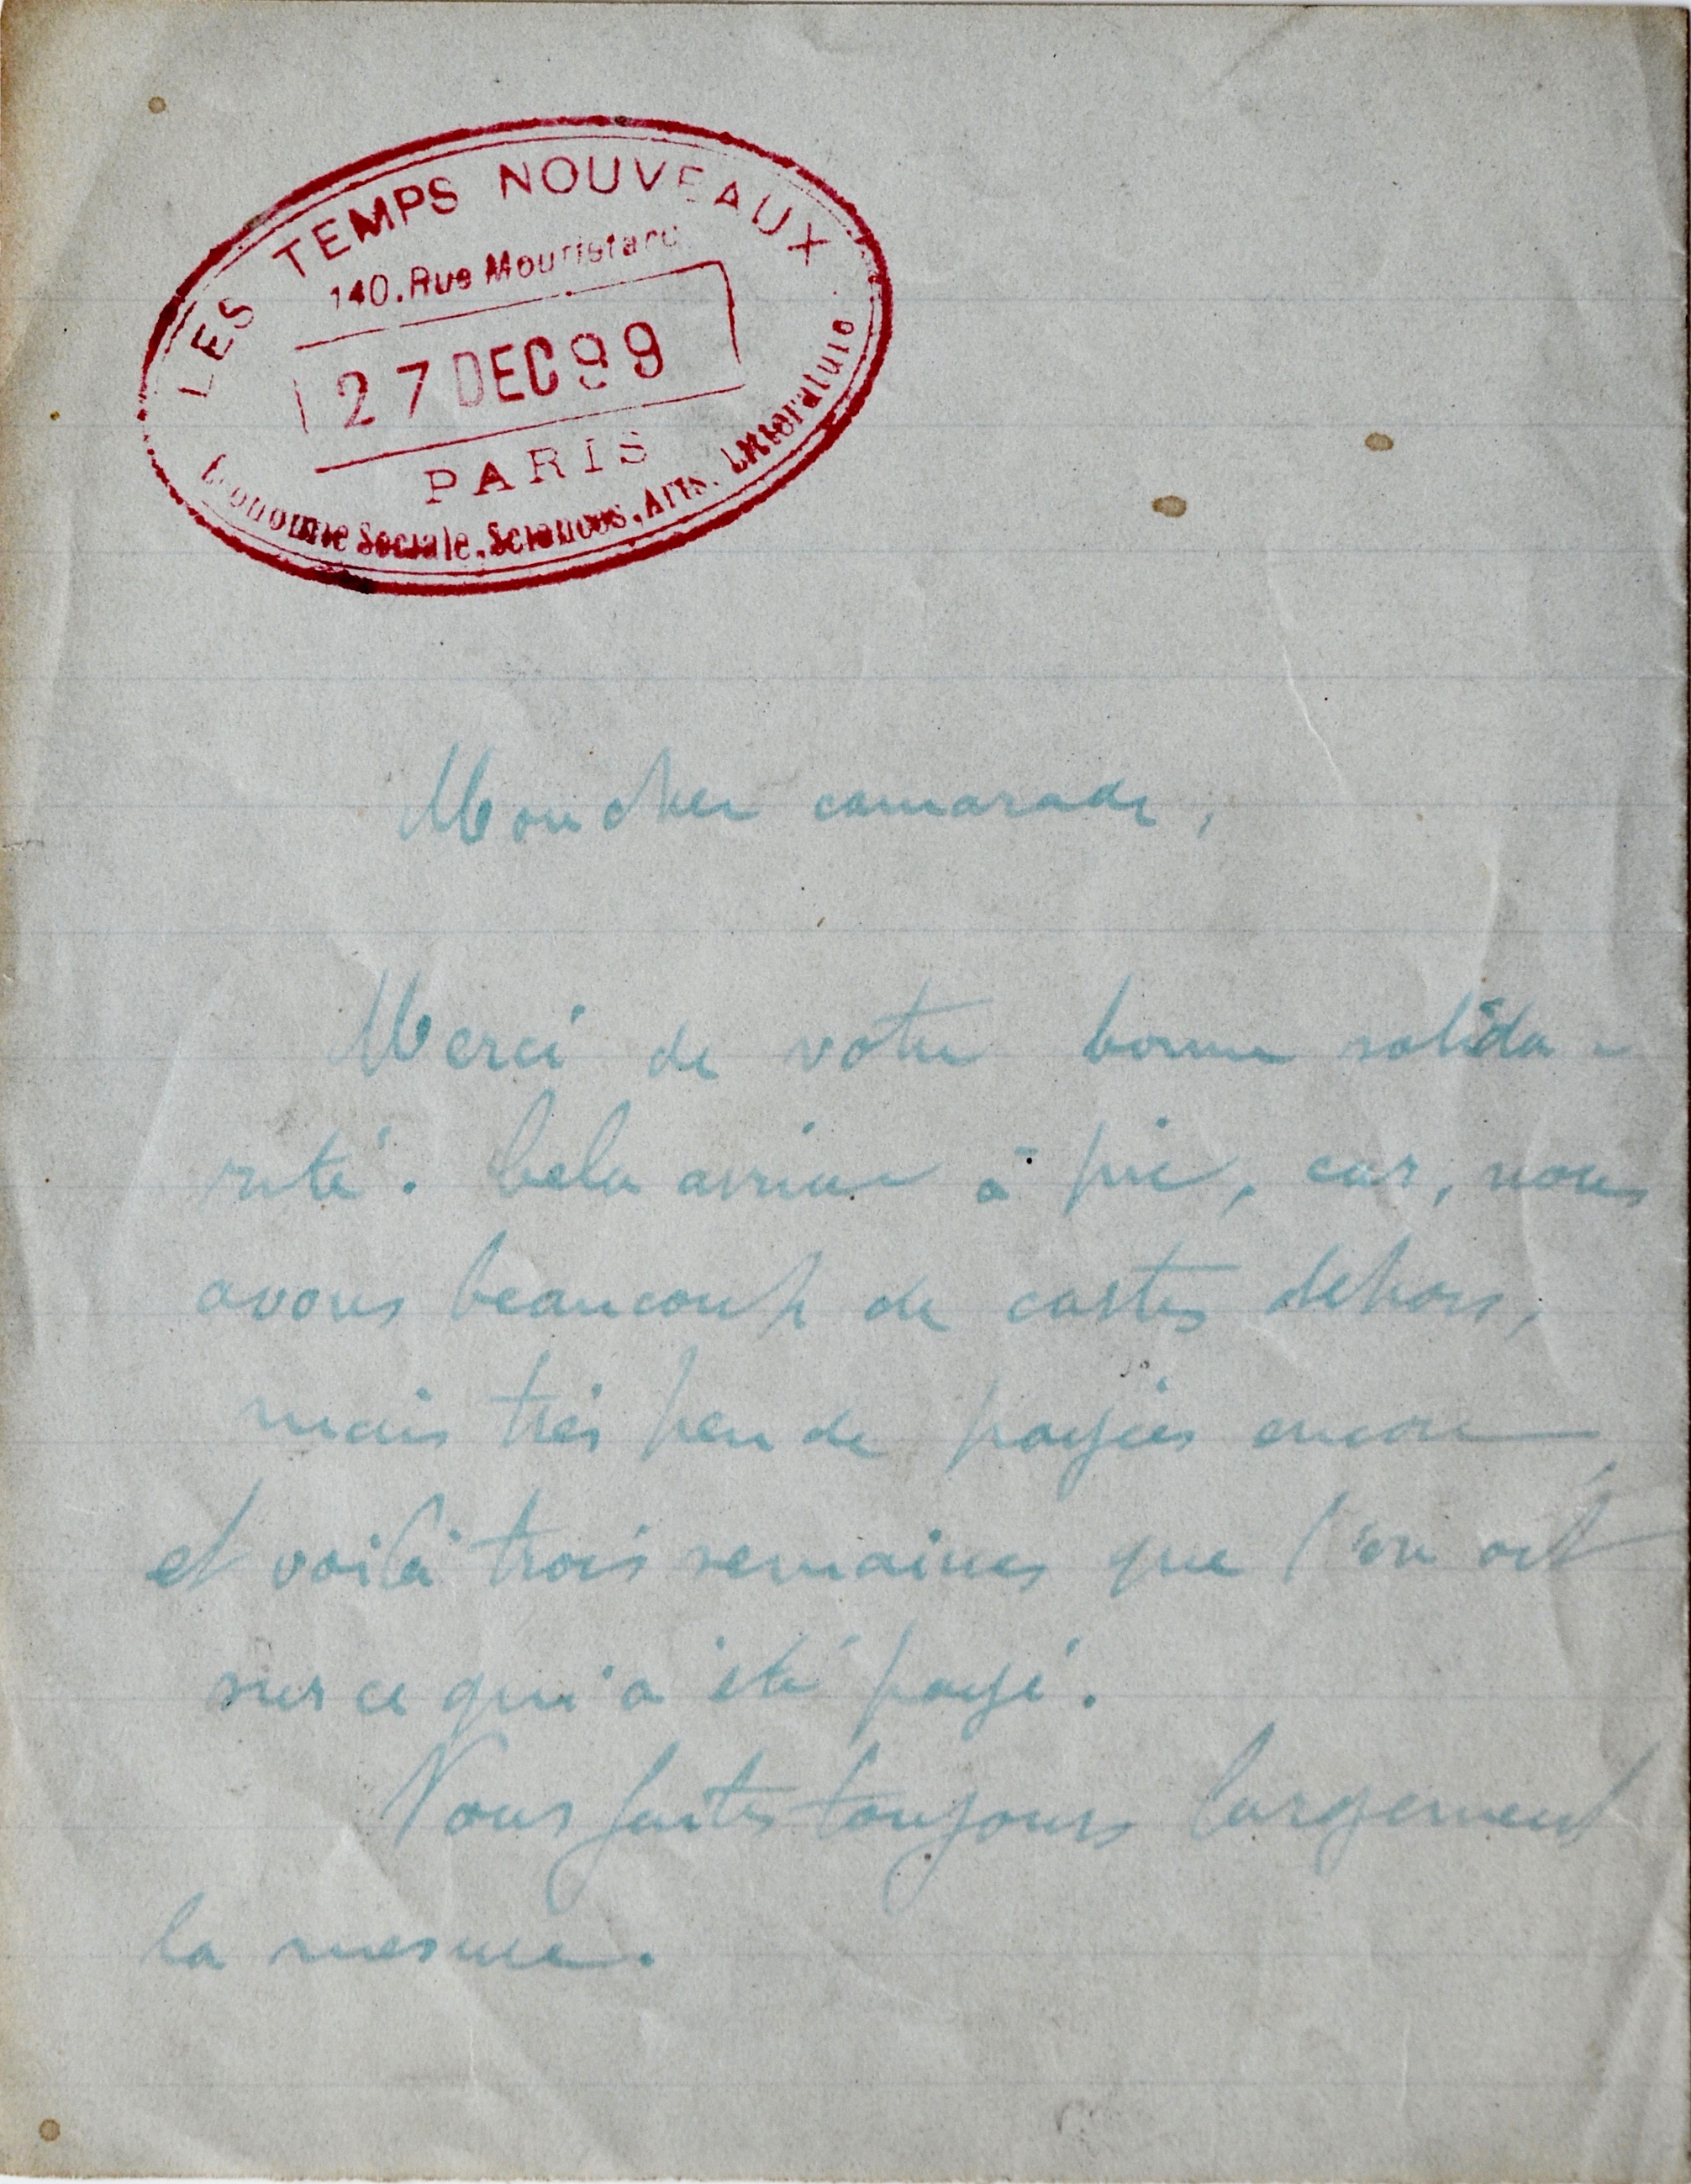 LES TEMPS NOUVEAUX
140. Rue Mouffetard
27 DEC 99
PARIS
Economie Sociale. Sciences. Arts. Littérature.
Mon cher camarade,
Merci de votre bonne solida-
rité. Cela arrive à pic, car, nous
avons beaucoup de cartes dehors,
mais très peu de payées encore,
et voilà trois semaines que l'on
sur ce qui a été payé.
Vous faites toujours largement
la mesure.